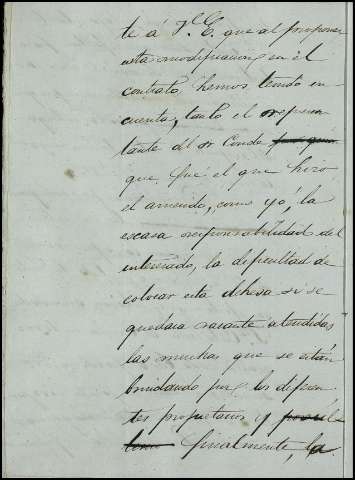 te á V. E. que al proponer
esta modificacion en el
contrato, hemos tenido en
cuenta, tanto el represen
tante del Sr Conde
que fue el que hizo
el arriendo, como yo, la
escasa responsabilidad del
interesado, la dificultad de
colocar esta dehesa si se
quedara vacante atendidas
las muchas que se están
brindando por los diferen
tes propietarios y
finalmente, la